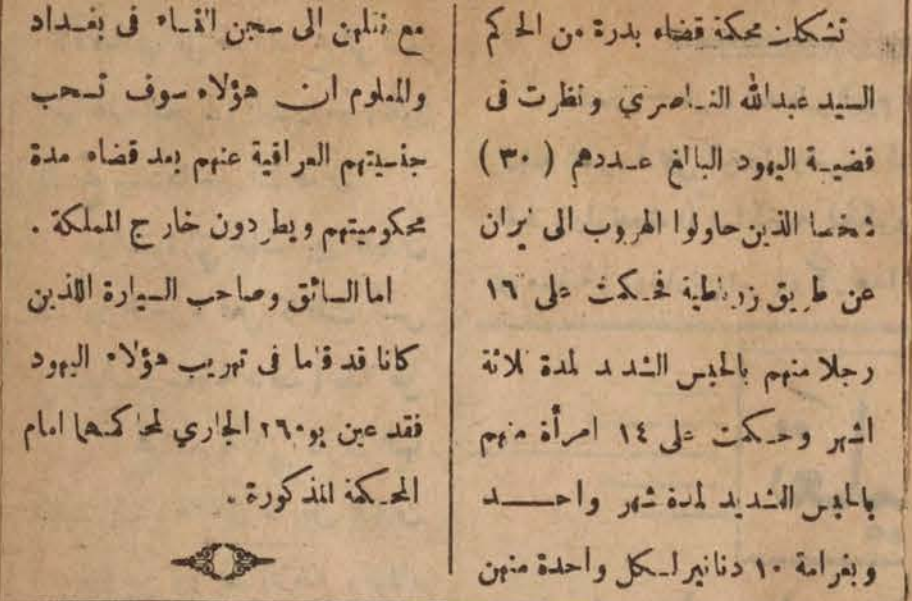 تشكلت محكمة قضاء بدرة من الحاكم
السيد عبدالله الناصري ونظرت في
قضية اليهود البالغ عددهم (٣٠)
شخصا الذين حاولوا الهروب الى ايران
عن طريق زرباطية فحكمت على ١٦
رجلا منهم بالحبس الشديد لمدة ثلاثة
اشهر وحكمت على ١٤ امرأة منهم
بالحبس الشديد لمدة شهر واحد
وبغرامة ١٠ دنانير لكل واحدة منهن
مع نقلهن الى سجن النساء في بغداد
والمعلوم ان هؤلاء سوف تسحب
جنسيتهم العراقية عنهم بعد قضاء مدة
محكوميتهم ويطردون خارج المملكة .
اما السائق وصاحب السيارة اللذين
كانا قد قاما في تهريب هؤلاء اليهود
فقد عين يوم ٢٦ الجاري لمحاكمهما امام
المحكمة المذكورة .